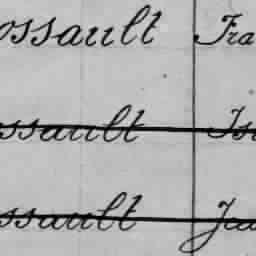 ossault Fra
ssault Is
ssault Jea